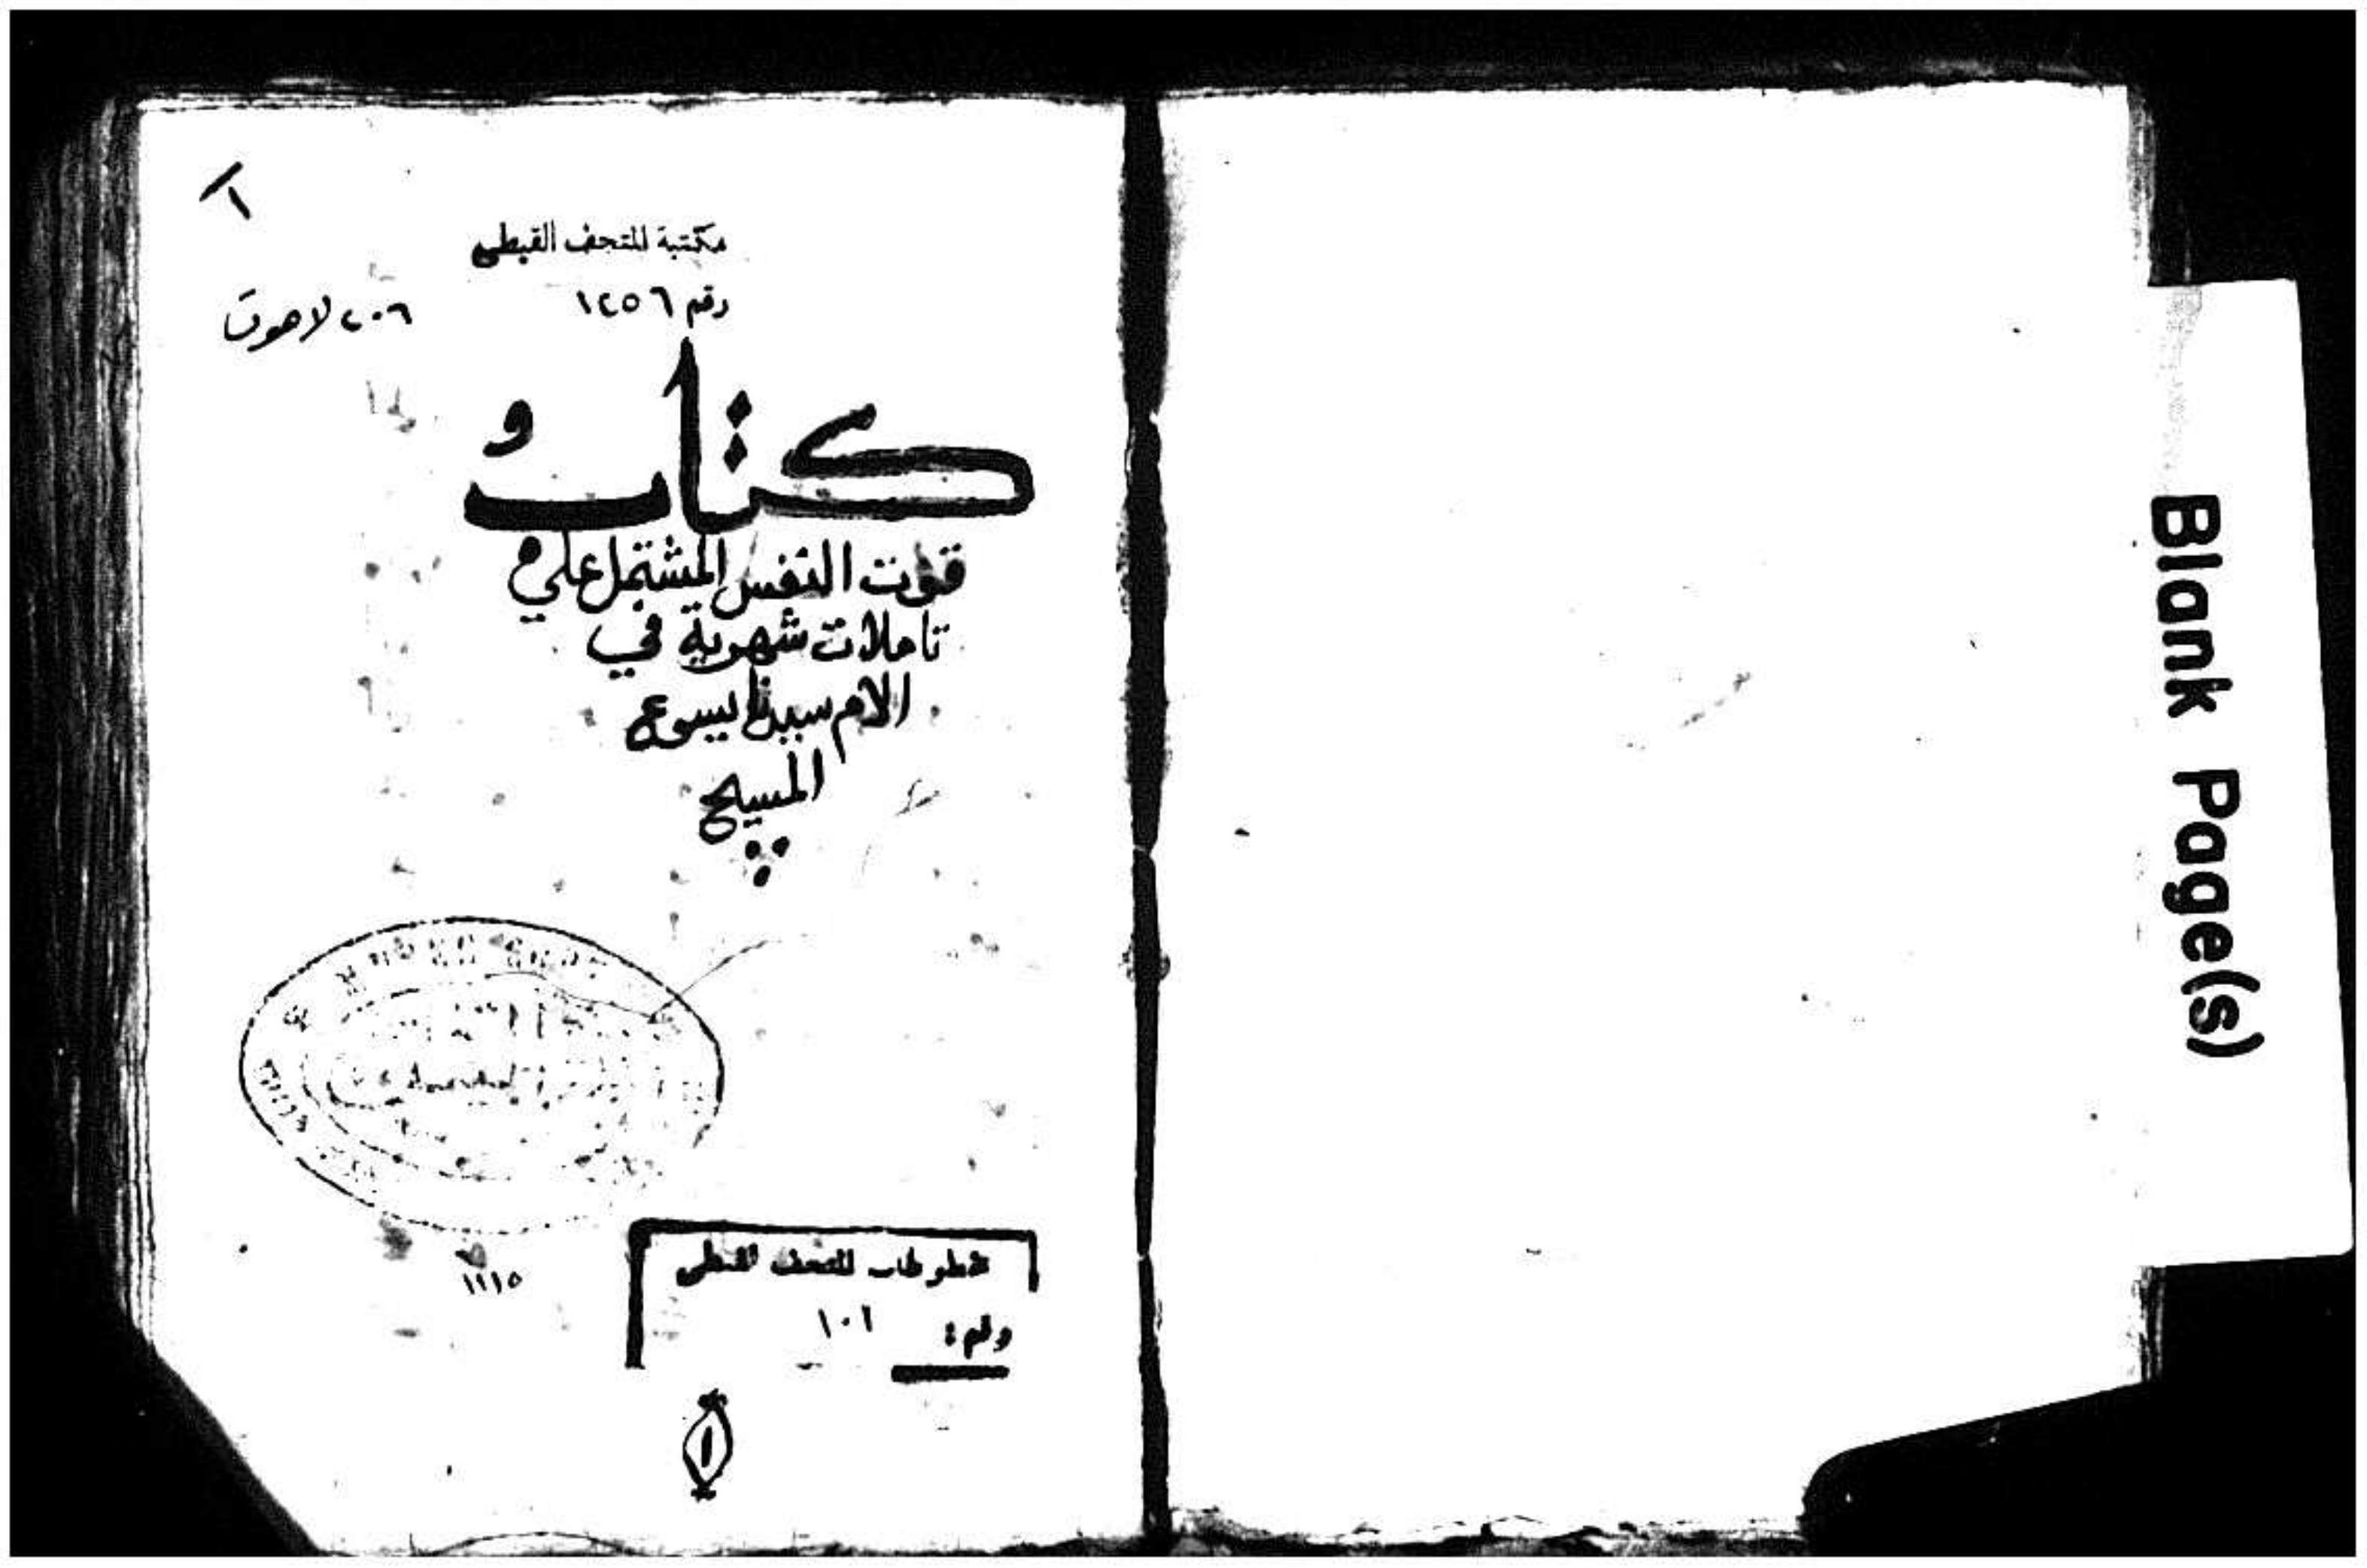 ١
مكتبة المتحف القبطى
رقم ١٢٥٦
٢٠٦ لاهوت
كتاب
قوت النفس المشتمل علي
تاملات شهرية في
الام سيدنا يسوع
المسيح
١٩١٥
مخطوطات المتحف القبطى
رقم : ١٠٦
١
Blank Page(s)